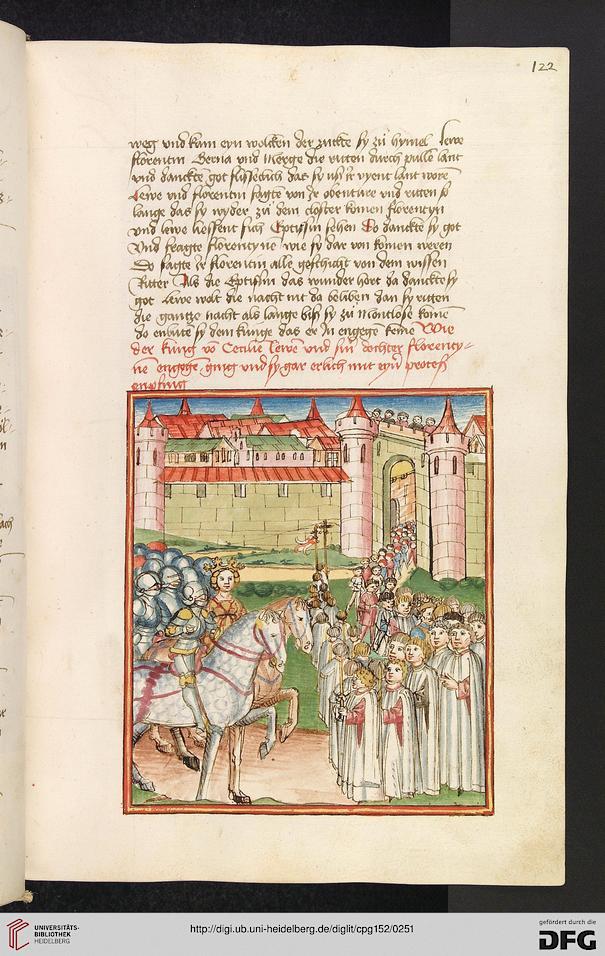 122
weg vnd kam eyn wolcken der zuckte sy zu hymel Lewe
florentin Gerna vnd Merge die ritten durch pulle lant
vnd danckte got flisseclich das sy uß ir vyent lant wore
Lewe vnd florentin sagte von ir obenture vnd ritten so
lange das sy wyder zu dem closter komen florentyn
vnd lewe liessent sich Eptissin sehen Do danckte sy got
Vnd fragte florentyne wie sy dar von komen weren
Do sagte ir florentin alle geschicht von dem wissen
Ritter Als die Eptissin das wunder hort da danckte sy
got Lewe wolt die nacht nit da beliben dan sy ritten
die gantze nacht als lange biß sy zu Montlose kome
do enbute sy dem kunge das er In engege keme Wie
der king vo Cecilie Lewe vnd sin dochter florency-
ne engege ging vnd sy gar erlich mit eyner proceß
enpfing
UNIVERSITÄTS-
BIBLIOTHEK
HEIDELBERG
http://digi.ub.uni-heidelberg.de/diglit/cpg152/0251
gefördert durch die
DFG